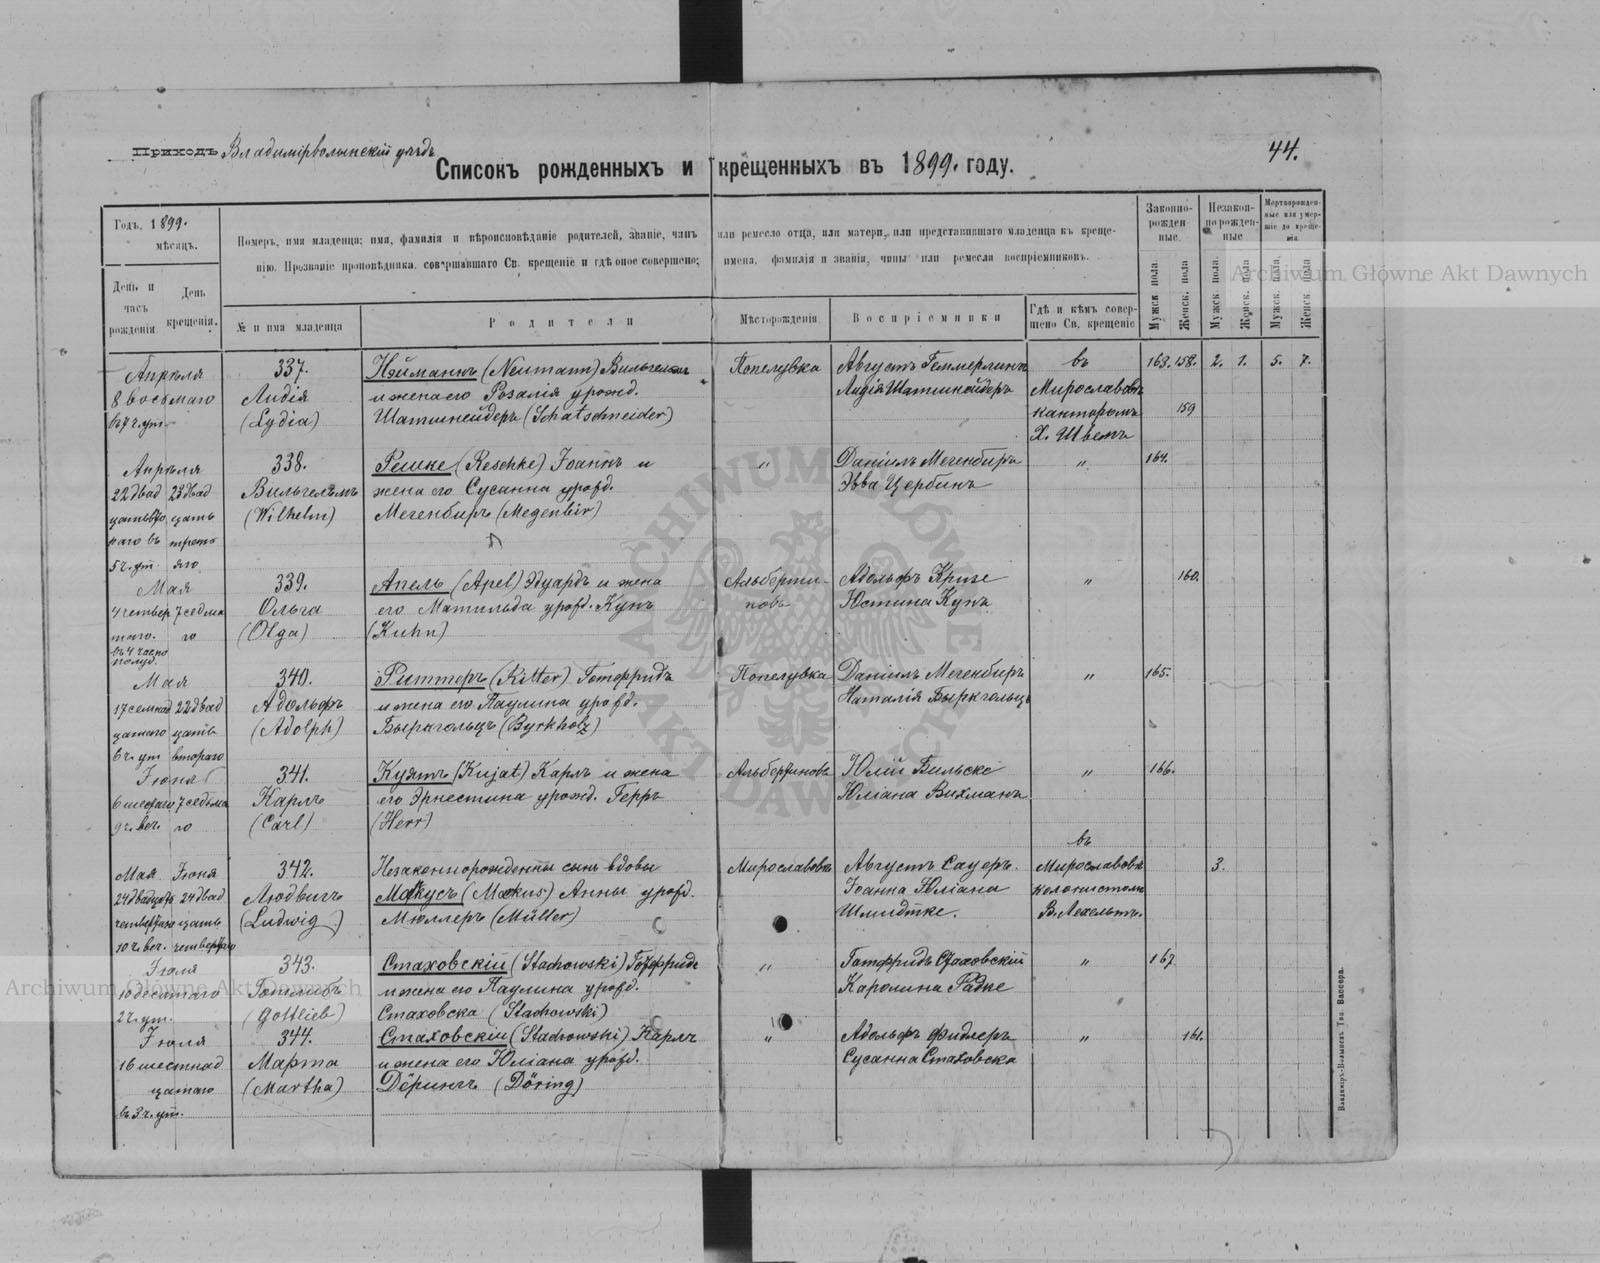 Приходъ Владимірволынскій уѣздъ
44.
Списокъ рожденныхъ и крещенныхъ въ 1899. году.
Годъ, 1899.
мѣсяцъ.
Номеръ, имя младенца; имя, фамилія и вѣроисповѣданіе родителей, званіе, чинъ или ремесло отца, или матери, или представившаго младенца къ креще-
нію. Прозваніе проповѣдника, совершавшаго Св. крещеніе и гдѣ оное совершено; имена, фамилія и званія, чины или ремесла воспріемниковъ.
Законно-
рожден
ные.
Незакон-
норожден-
ные
Мертворожден-
ные или умер-
шіе до креще-
нія.
День и
часъ
рожденія
День
крещенія.
№ и имя младенца
Родители
Мѣсторожденія
Воспріемники
Гдѣ и кѣмъ совер-
шено Св. крещеніе
Мужск пола
Женск. пола
Мужск пола.
Женск. пола
Мужск. пола.
Женск пола
Апрѣля
8 восьмаго
337.
Лидія
(Lydia)
Нэйманнъ (Neumann) Вильгельм
и жена его Розалія урожд.
Шатшнейдеръ (Schatschneider)
Попелувка
Августъ Геммерлингъ
Лидія Шатшнейдеръ
въ
Мирославовкѣ
канторомъ
Х. Швемъ
163. 158. 2. 1. 5. 7.
159
Апрѣля
22 двад 23 двад
цать вто цать
раго въ третъ
5 ч. ут яго
338.
Вильгельмъ
(Wilhelm)
Решке (Reschke) Іоаннъ и
жена его Сусанна урожд.
Мегенбиръ (Megenbir)
"
Даніилъ Мегенбиръ
Эвва Цербинъ
"
164.
Мая
4 четвер 7 седма
таго. го
въ 4 часа по
полуд.
339.
Ольга
(Olga)
Апель (Apel) Эдуардъ и жена
его Матильда урожд. Кунъ
(Kuhn)
Альберти-
новъ
Адольфъ Кризе
Юстина Кунъ
"
160.
Мая
17 семнад 22 двад
цатаго цать
6 ч. ут втораго
340.
Адольфъ
(Adolph)
Риттеръ (Ritter) Готфридъ
и жена его Паулина урожд.
Быркгольцъ (Byrkholz)
Попелувка
Даніилъ Мегенбиръ
Наталія Быркгольцъ
"
165.
Іюня
6 шестаго 7 седьма
9 ч. веч. го
341.
Карлъ
(Carl)
Куятъ (Kujat) Карлъ и жена
его Эрнестина урожд. Герръ
(Herr)
Альбертиновъ
Юлій Бильске
Юліана Вихманъ
"
166.
Мая Іюня
24 двадцать 24 двад
четвертаго цать
10 ч. веч. четвертаго
342.
Людвигъ
(Ludwig)
Незаконнорожденный сынъ вдовы
Маркусъ (Markus) Анны урожд.
Мюллеръ (Müller)
Мирославовкѣ
Августъ Сауеръ.
Іоанна Юліана
Шмидтке.
въ
Мирославовкѣ
колонистомъ
В. Лехельтъ.
3.
Іюля
10 десятаго
2 ч. ут.
343.
Готлибъ
(Gottlieb)
Стаховскій (Stachowski) Готфридъ
и жена его Паулина урожд.
Стаховска (Stachowski)
"
Готфридъ Стаховскій
Каролина Радке
"
167.
Іюля
16 шестнад
цатаго
въ 3 ч. ут.
344.
Марта
(Martha)
Стаховскій (Stachowski) Карлъ
и жена его Юліана урожд.
Дёрингъ (Döring)
"
Адольфъ Фидлеръ
Сусанна Стаховска
"
161.
Владиміръ-Волынскъ Тип. Вассера.
Archiwum Główne Akt Dawnych
Archiwum Główne Akt Dawnych
ARCHIWUM GŁÓWNE AKT DAWNYCH